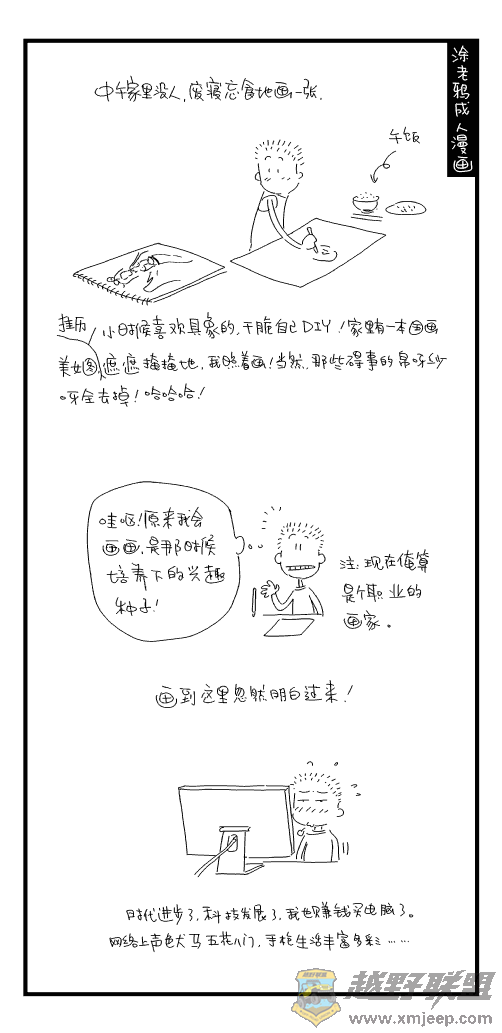 涂老鸦成人漫画
中午家里没人,废寝忘食地画一张.
午饭
小时候喜欢具象的,干脆自己DIY!家里有一本国画
挂历
美女图,遮遮掩掩地,我照着画!当然,那些碍事的帛呀纱
呀全去掉!哈哈哈!
哇呕!原来我会
画画,是那时候
培养下的兴趣
种子!
注:现在俺算
是个职业的
画家。
画到这里忽然明白过来!
时代进步了,科技发展了,我也赚钱买电脑了。
网络上声色犬马五花八门,手枪生活丰富多彩……
越野联盟
www.xmjeep.com